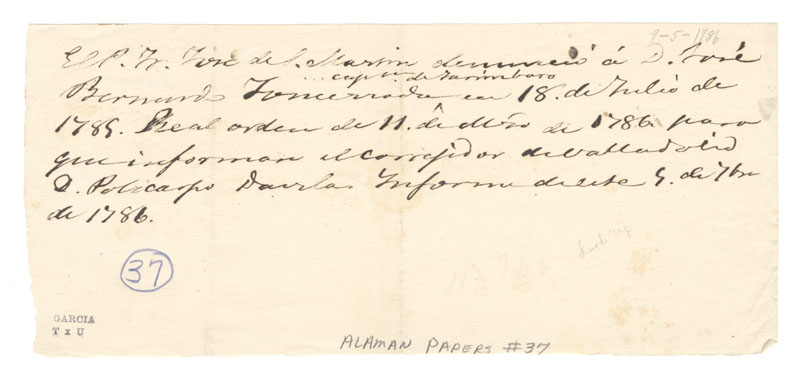 9-5-1786
El P. Fr. José de S. Martin denunció á D. José
capn. de Tarimbaro
Bernardo Foncerrada en 18. de Julio de
1785. Real orden de 11. de Mzo de 1786. para
que informara el corregidor de Valladolid
D. Policarpo Davila. Informe de este 5. de 7bre
de 1786.
37
look up
GARCIA
T x U
ALAMAN PAPERS #37